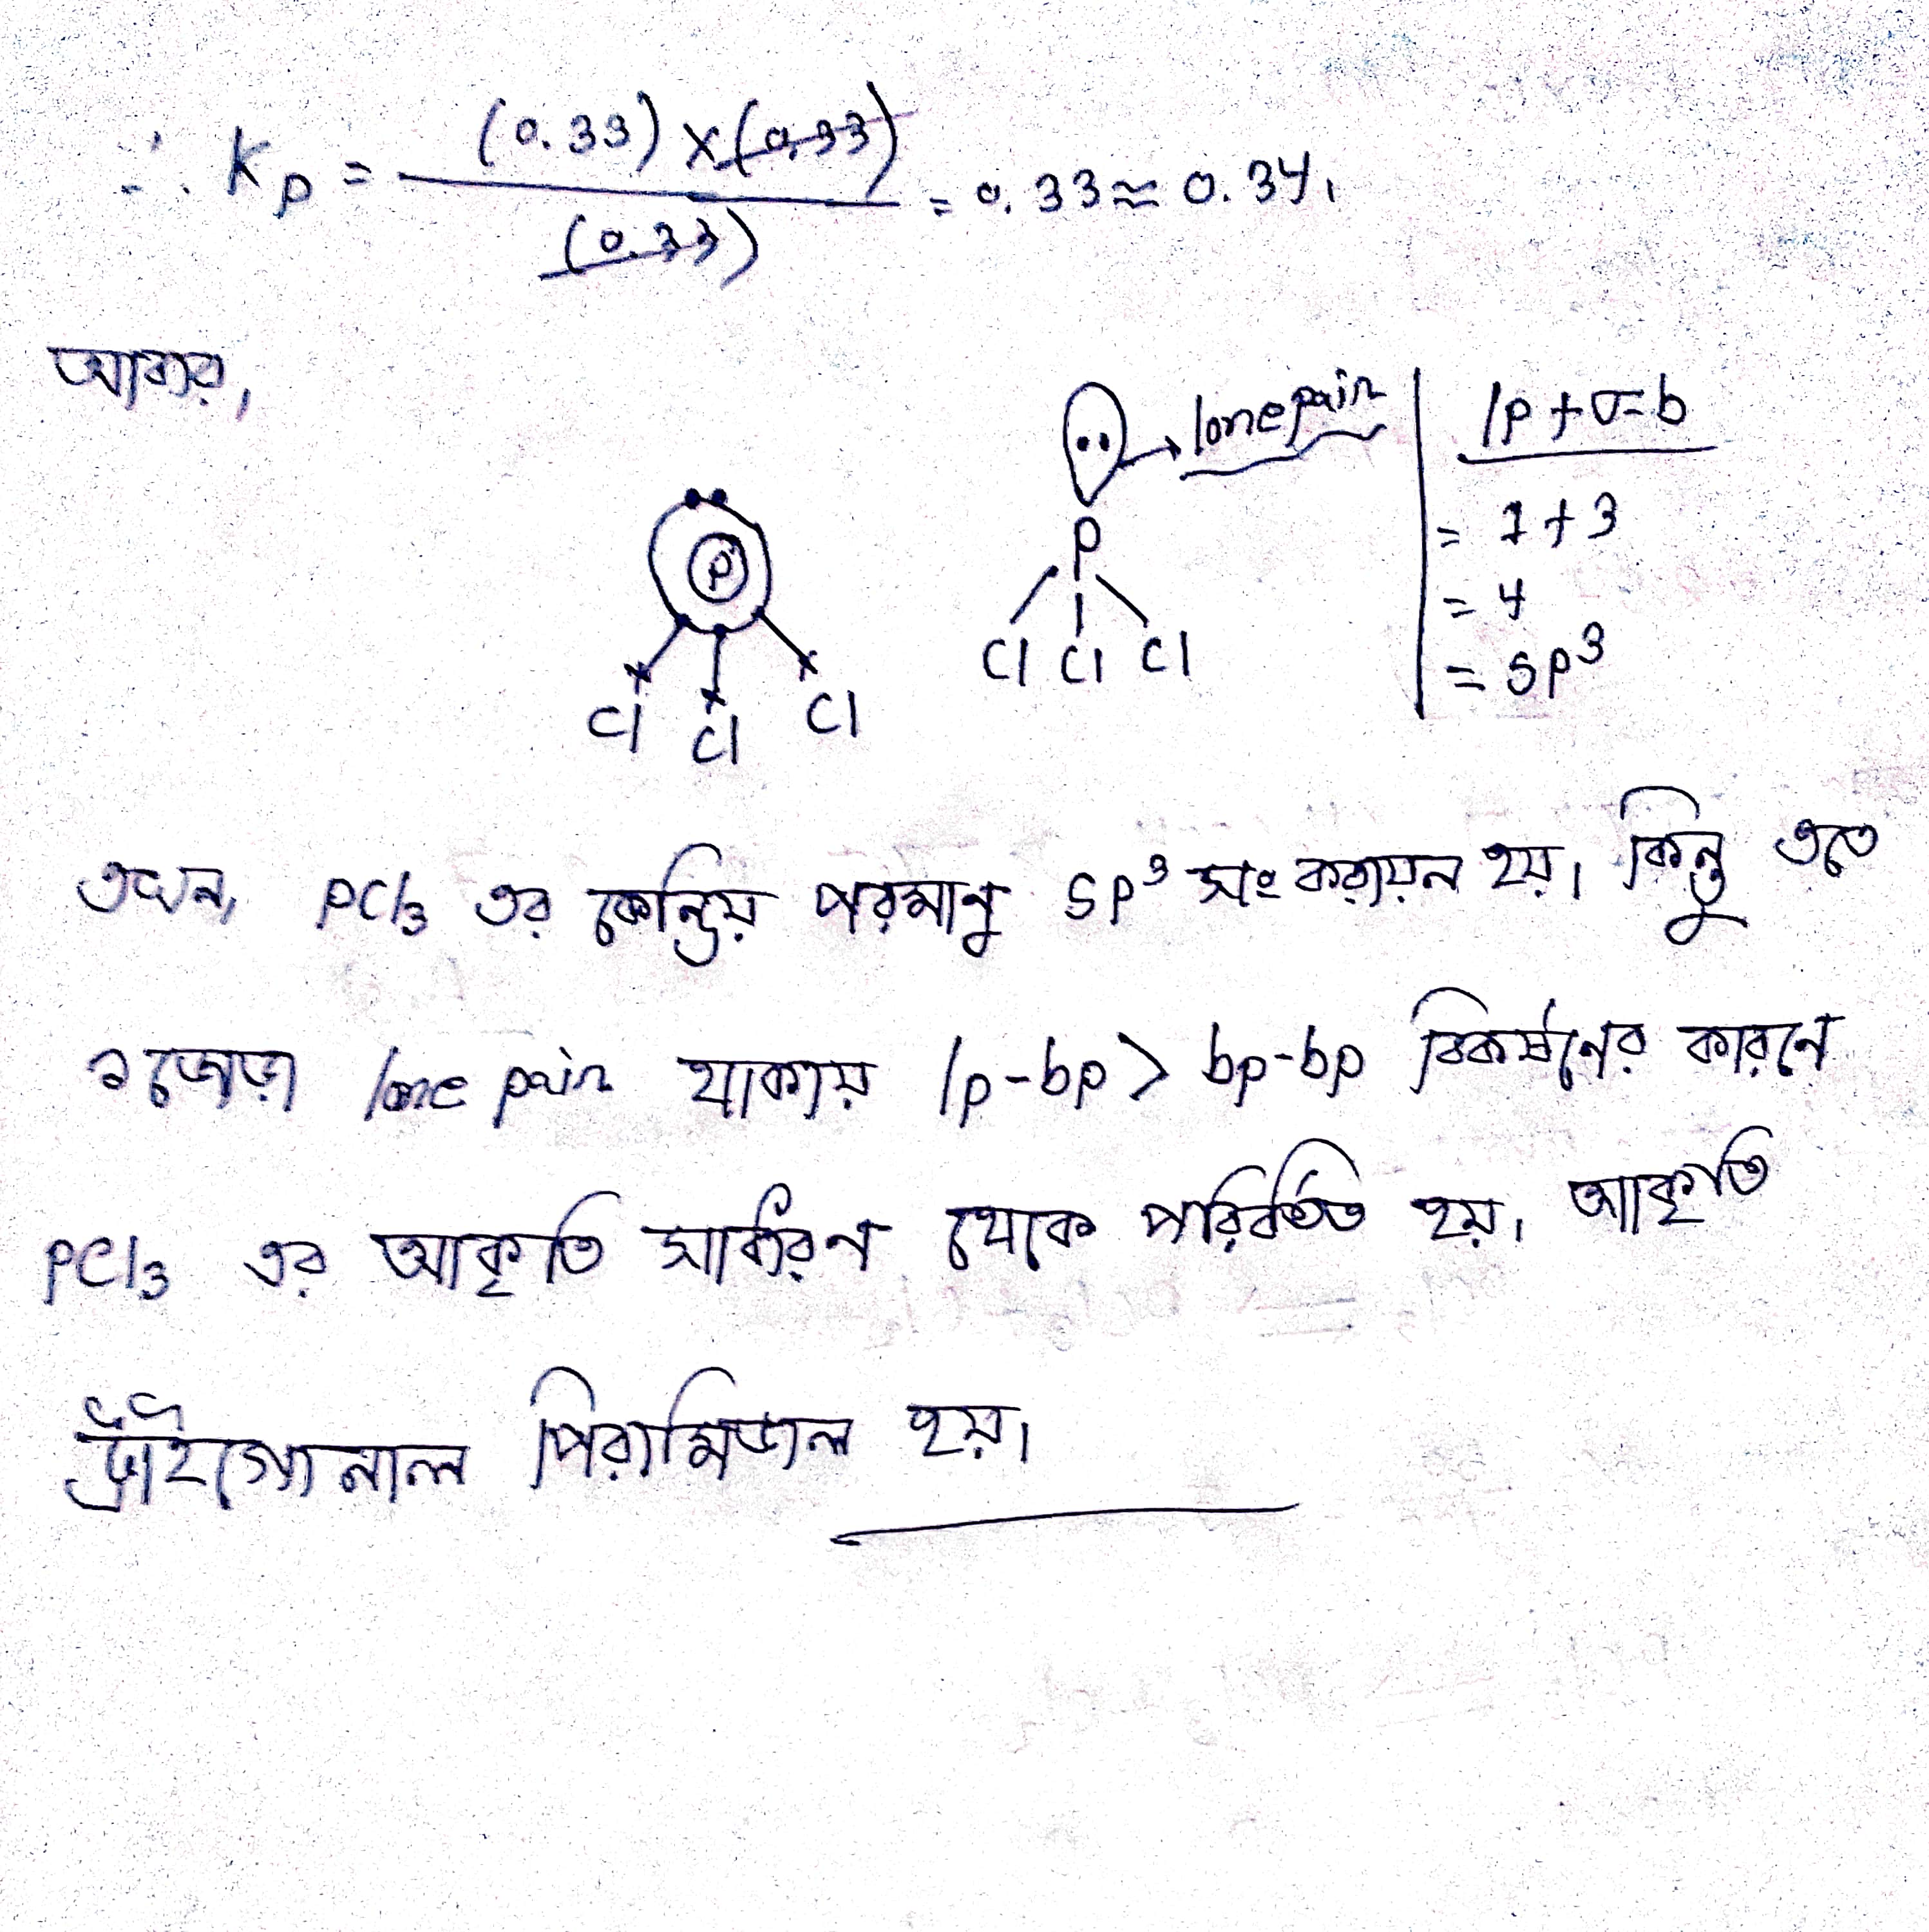 ∴ Kp = (0.33) × (0.33) / (0.33) = 0.33 ≈ 0.34,
আবার,
lone pair
P
Cl Cl Cl
P
Cl Cl Cl
lp + σ-b
= 1 + 3
= 4
= sp³
তখন, PCl₃ এর কেন্দ্রিয় পরমানু sp³ সংকরায়ন হয়। কিন্তু এতে
১ জোড়া lone pair থাকায় lp-bp > bp-bp বিকর্ষনের কারনে
PCl₃ এর আকৃতি সাধারন থেকে পরিবর্তিত হয়। আকৃতি
ট্রাইগোনাল পিরামিডাল হয়।